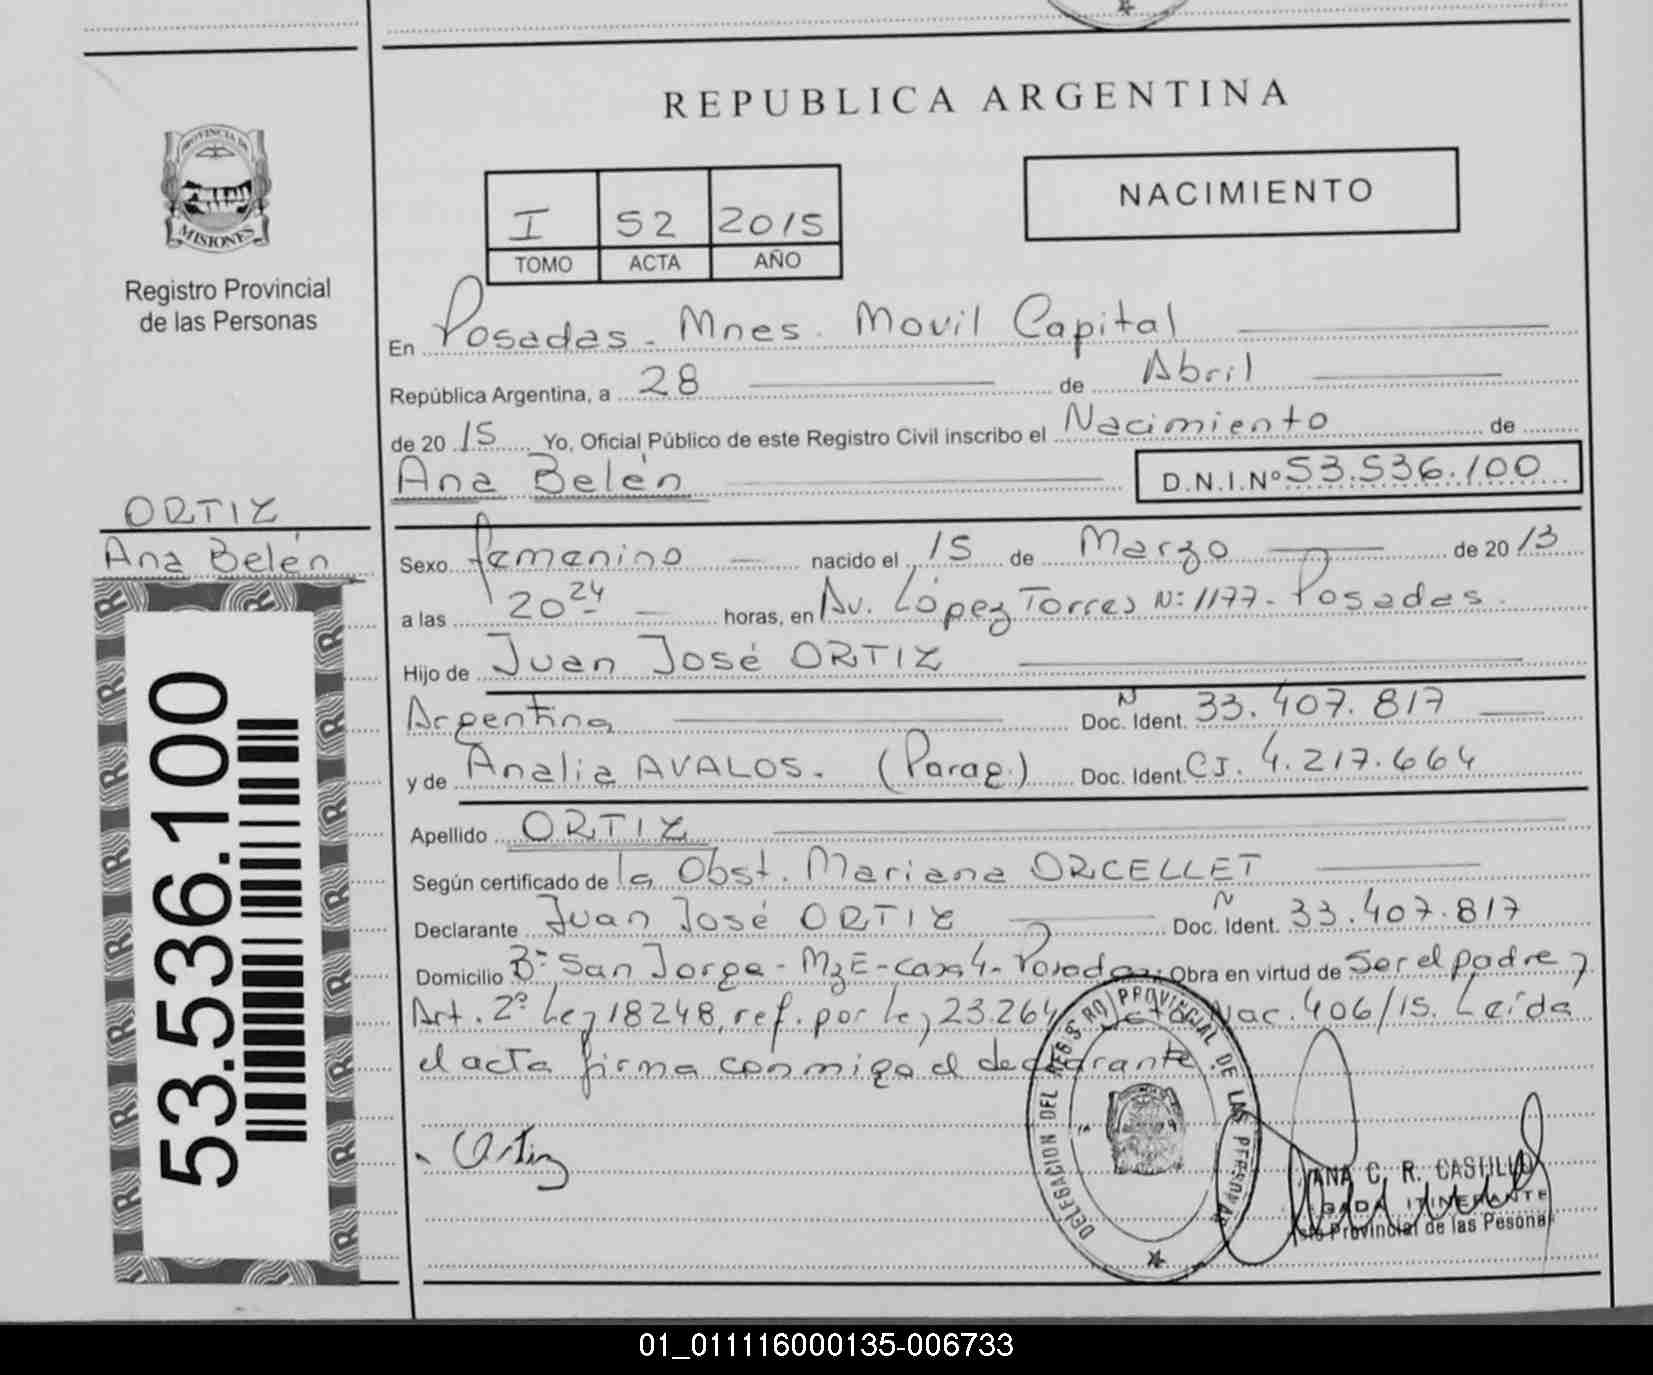 REPUBLICA ARGENTINA
PROVINCIA DE
MISIONES
Registro Provincial
de las Personas
I 52 2015
TOMO ACTA AÑO
NACIMIENTO
En Posadas - Mnes. Movil Capital
República Argentina, a 28 de Abril
de 20 15 Yo, Oficial Público de este Registro Civil inscribo el Nacimiento de
Ana Belén D.N.I.Nº 53.536.100
ORTIZ
Ana Belén
53.536.100
Sexo femenino nacido el 15 de Marzo de 20 13
a las 20 24 horas, en Av. López Torres Nº 1177 - Posadas.
Hijo de Juan José ORTIZ
Argentina Doc. Ident. N 33.407.817
y de Analia AVALOS. (Parag.) Doc. Ident. CI. 4.217.664
Apellido ORTIZ
Según certificado de la Obst. Mariana ORCELLET
Declarante Juan José ORTIZ Doc. Ident. N 33.407.817
Domicilio Bº San Jorge - Mz E - casa 4 - Posadas. Obra en virtud de Ser el padre y
Art. 2º Ley 18248, ref. por Ley 23.264 Nac. 406/15. Leída
el acta firma conmigo el declarante.
Ortiz
DELEGACION DEL REGISTRO PROVINCIAL DE LAS PERSONAS
ANA C. R. CASTILLO
GADA ITINERANTE
Provincial de las Pesonas
01_011116000135-006733